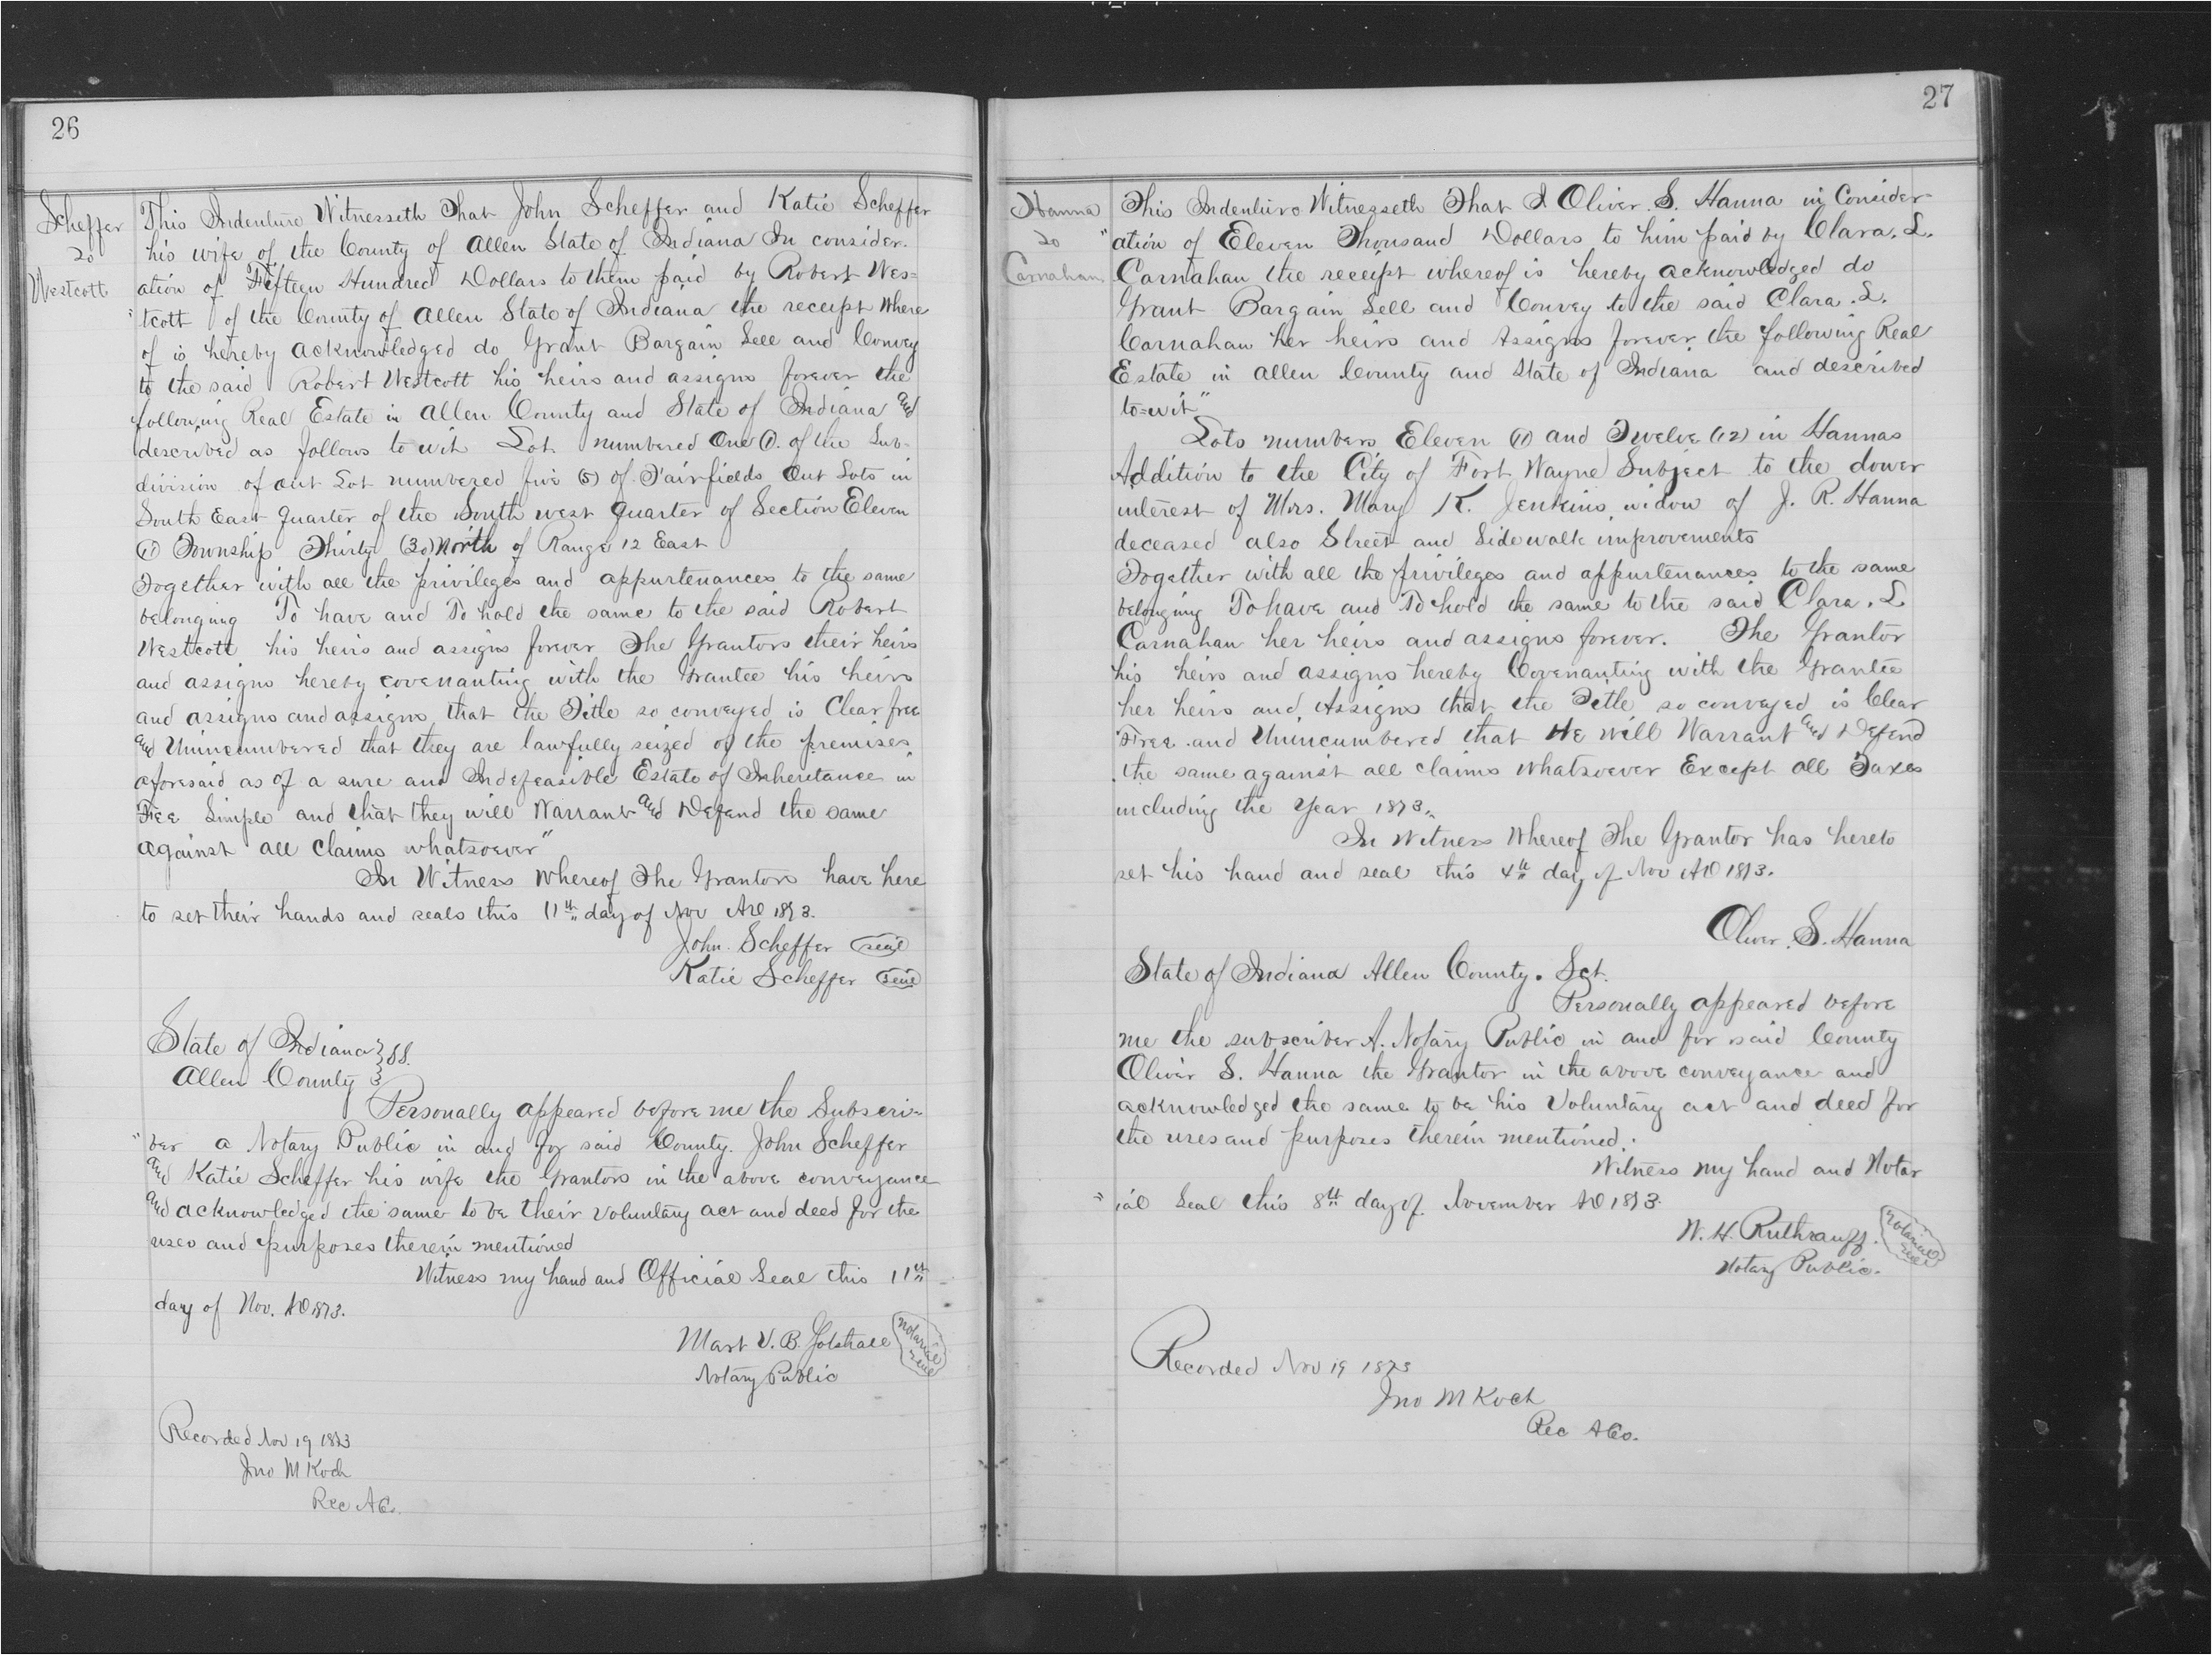 26
Scheffer
to
Westcott
This Indenture Witnesseth That John Scheffer and Katie Scheffer
his wife of the County of Allen State of Indiana In consider-
ation of Fifteen Hundred Dollars to them paid by Robert Wes=
"tcott of the County of Allen State of Indiana the receipt Where
of is hereby acknowledged do Grant Bargain Sell and Convey
to the said Robert Westcott his heirs and assigns forever the
following Real Estate in Allen County and State of Indiana and
described as follows to wit Lot numbered One (1). of the Sub-
division of out Lot numbered five (5) of Fairfields Out Lots in
South East Quarter of the South west Quarter of Section Eleven
(11) Township Thirty (30) North of Range 12 East
Together with all the privileges and appurtenances to the same
belonging To have and To hold the same to the said Robert
Westcott his heirs and assigns forever The Grantors their heirs
and assigns hereby covenanting with the Grantee his heirs
and assigns and assigns that the Title so conveyed is Clear free
and Unincumbered that they are lawfully seized of the premises
aforesaid as of a sure and Indefeasible Estate of Inheritance in
Fee Simple and that they will Warrant and Defend the same
against all claims whatsoever"
In Witness Whereof The Grantors have here
to set their hands and seals this 11th day of Nov AD 1873.
John. Scheffer (seal)
Katie Scheffer (seal)
State of Indiana } SS.
Allen County }
Personally appeared before me the Subscri-
"ber a Notary Public in and for said County. John Scheffer
and Katie Scheffer his wife the Grantors in the above conveyance
and acknowledged the same to be their voluntary act and deed for the
uses and purposes therein mentioned
Witness my hand and Official Seal this 11th
day of Nov. AD 1873.
Mart V. B.
Notary Public
notarial seal
Recorded Nov 19 1873
Jno M Koch
Rec A Co.
27
Hanna
to
Carnahan
This Indenture Witnesseth That I Oliver. S. Hanna in Consider
"ation of Eleven Thousand Dollars to him paid by Clara. L.
Carnahan the receipt whereof is hereby acknowledged do
Grant Bargain Sell and Convey to the said Clara. L.
Carnahan her heirs and Assigns forever the following Real
Estate in Allen County and State of Indiana and described
to=wit"
Lots numbers Eleven (11) and Twelve (12) in Hannas
Addition to the City of Fort Wayne Subject to the dower
interest of Mrs. Mary K. Jenkins, widow of J. R. Hanna
deceased also Street and Sidewalk improvements
Together with all the privileges and appurtenances to the same
belonging To have and To hold the same to the said Clara. L
Carnahan her heirs and assigns forever. The Grantor
his heirs and assigns hereby Covenanting with the Grantee
her heirs and Assigns that the Title so conveyed is Clear
Free and Unincumbered that He will Warrant and Defend
the same against all claims whatsoever Except all Taxes
including the Year 1873.
In Witness Whereof The Grantor has hereto
set his hand and seal this 4th day of Nov AD 1873.
Oliver. S. Hanna
State of Indiana Allen County. Sct.
Personally appeared before
me the subscriber A. Notary Public in and for said County
Oliver S. Hanna the Grantor in the above conveyance and
acknowledged the same to be his Voluntary act and deed for
the uses and purposes therein mentioned.
Witness my hand and Notar
"ial Seal this 8th day of November AD 1873.
W. H. Ruthrauff.
Notary Public.
notarial seal
Recorded Nov 19 1873
Jno M Koch
Rec A Co.